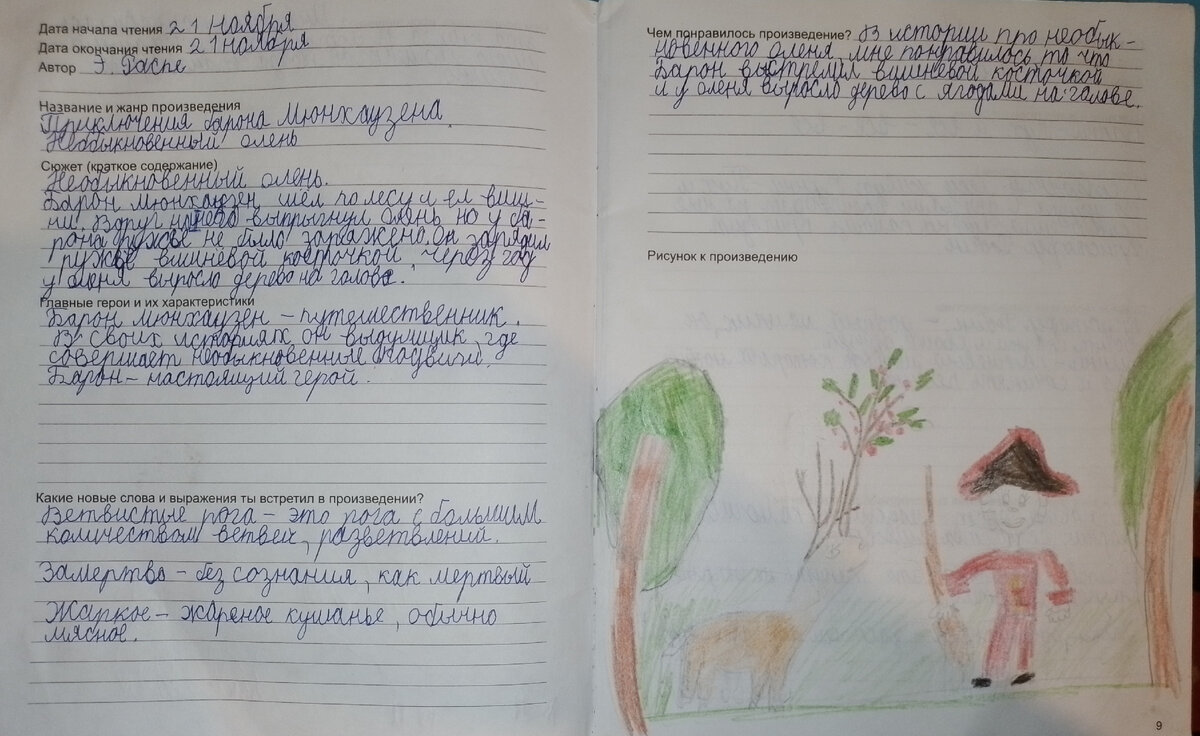 Дата начала чтения 21 ноября
Дата окончания чтения 21 ноября
Автор Э. Распе
Название и жанр произведения
Приключения барона Мюнхаузена.
Необыкновенный олень
Сюжет (краткое содержание)
Необыкновенный олень.
Барон мюнхаузен шёл по лесу и ел виш-
ни. Вдруг на него выпрыгнул олень но у ба-
рона ружьё не было заряжено. Он зарядил
ружьё вишнёвой косточкой, через год
у оленя выросло дерево на голове.
Главные герои и их характеристики
Барон мюнхаузен – путешественник.
В своих историях он выдумщик, где
совершает необыкновенные подвиги.
Барон – настоящий герой.
Какие новые слова и выражения ты встретил в произведении?
Ветвистые рога – это рога с большим
количеством ветвей, разветвлений.
Замертво – без сознания, как мертвый
Жаркое – жареное кушанье, обычно
мясное.
Чем понравилось произведение? В истории про необык-
новенного оленя, мне понравилось то что
Барон выстрелил вишнёвой косточкой
и у оленя выросло дерево с ягодами на голове.
Рисунок к произведению
9